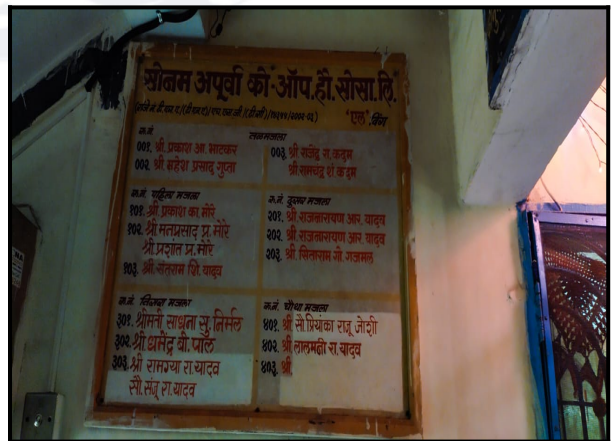 सोनम अपूर्वा को-ऑप. हौ. सोसा. लि.
'एल' विंग
रु.नं. तळमजला
००१. श्री. प्रकाश आ. भाटकर
००२. श्री. महेश प्रसाद गुप्ता
००३. श्री. राजेंद्र रा. कदम
श्री. रामचंद्र शं. कदम
रु.नं. पहिला मजला
१०१. श्री. प्रकाश का. मोरे
१०२. श्री. मतप्रसाद प्र. मोरे
श्री. प्रशांत प्र. मोरे
१०३. श्री. संतराम शि. यादव
रु.नं. दुसरा मजला
२०१. श्री. राजनारायण आर. यादव
२०२. श्री. राजनारायण आर. यादव
२०३. श्री. सिताराम गो. गजमल
रु.नं. तिसरा मजला
३०१. श्रीमती साधना सु. निर्मल
३०२. श्री. धर्मेंद्र बी. पाल
३०३. श्री रामग्या रा. यादव
सौ. संजू रा. यादव
रु.नं. चौथा मजला
४०१. श्री. सौ. प्रियांका राजू जोशी
४०२. श्री. लालमनी रा. यादव
४०३. श्री.